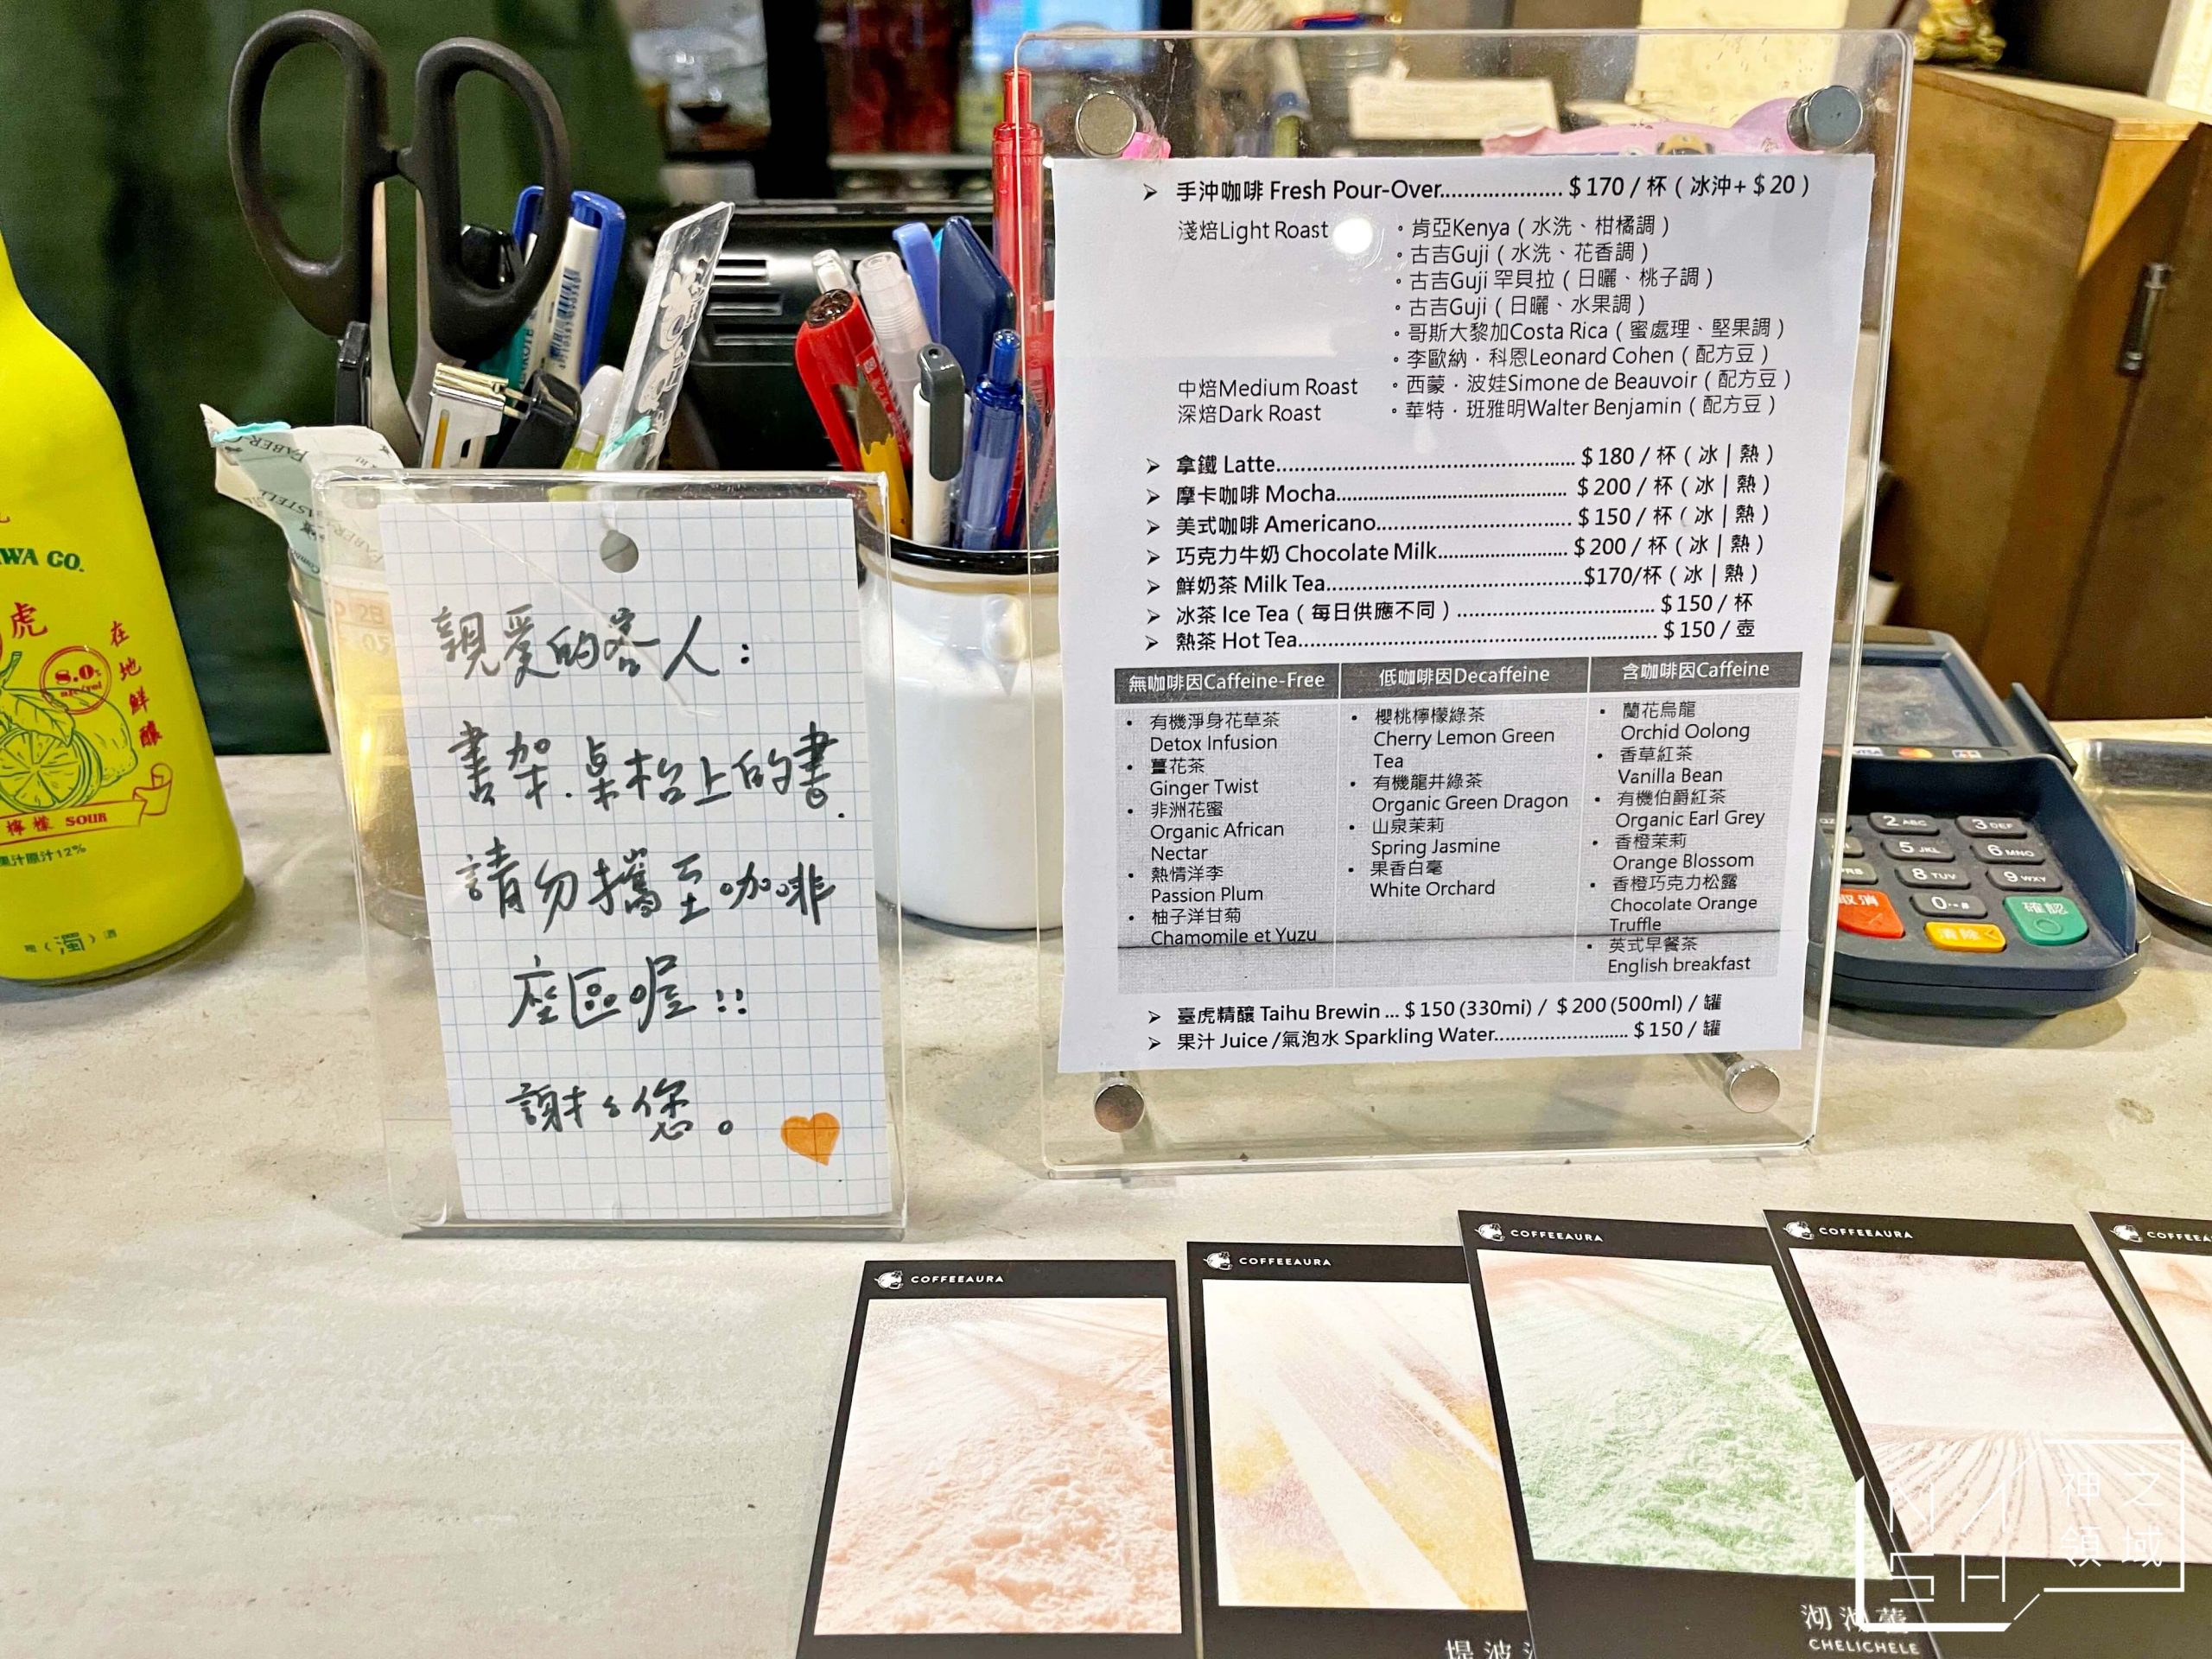 WA CO.
虎
在地鮮釀
8.0%
alc/vol
檸檬 SOUR
果汁原汁12%
濁 酒
親愛的客人:
書架.桌枱上的書.
請勿攜至咖啡
座區喔!!
謝謝您。
➢ 手沖咖啡 Fresh Pour-Over.................... $170 / 杯（冰沖+ $20）
淺焙Light Roast 。肯亞Kenya（水洗、柑橘調）
。古吉Guji（水洗、花香調）
。古吉Guji 罕貝拉（日曬、桃子調）
。古吉Guji（日曬、水果調）
。哥斯大黎加Costa Rica（蜜處理、堅果調）
。李歐納．科恩Leonard Cohen（配方豆）
中焙Medium Roast 。西蒙．波娃Simone de Beauvoir（配方豆）
深焙Dark Roast 。華特．班雅明Walter Benjamin（配方豆）
➢ 拿鐵 Latte.................................................. $180 / 杯（冰 | 熱）
➢ 摩卡咖啡 Mocha....................................... $200 / 杯（冰 | 熱）
➢ 美式咖啡 Americano................................. $150 / 杯（冰 | 熱）
➢ 巧克力牛奶 Chocolate Milk...................... $200 / 杯（冰 | 熱）
➢ 鮮奶茶 Milk Tea...........................................$170/杯（冰 | 熱）
➢ 冰茶 Ice Tea（每日供應不同）.................................. $150 / 杯
➢ 熱茶 Hot Tea............................................................ $150 / 壺
無咖啡因Caffeine-Free
• 有機淨身花草茶
Detox Infusion
• 薑花茶
Ginger Twist
• 非洲花蜜
Organic African
Nectar
• 熱情洋李
Passion Plum
• 柚子洋甘菊
Chamomile et Yuzu
低咖啡因Decaffeine
• 櫻桃檸檬綠茶
Cherry Lemon Green
Tea
• 有機龍井綠茶
Organic Green Dragon
• 山泉茉莉
Spring Jasmine
• 果香白毫
White Orchard
含咖啡因Caffeine
• 蘭花烏龍
Orchid Oolong
• 香草紅茶
Vanilla Bean
• 有機伯爵紅茶
Organic Earl Grey
• 香橙茉莉
Orange Blossom
• 香橙巧克力松露
Chocolate Orange
Truffle
• 英式早餐茶
English breakfast
➢ 臺虎精釀 Taihu Brewin ... $150 (330mi) / $200 (500ml) / 罐
➢ 果汁 Juice /氣泡水 Sparkling Water........................ $150 / 罐
VISA
2 ABC 3 DEF
5 JKL 6 MNO
8 TUV 9 WXY
取消 0 確認
清除
COFFEEAURA
COFFEEAURA
COFFEEAURA
COFFEEAURA
COFFEEA
堤波
沏
CHELICHELE
NASH
神之
領域